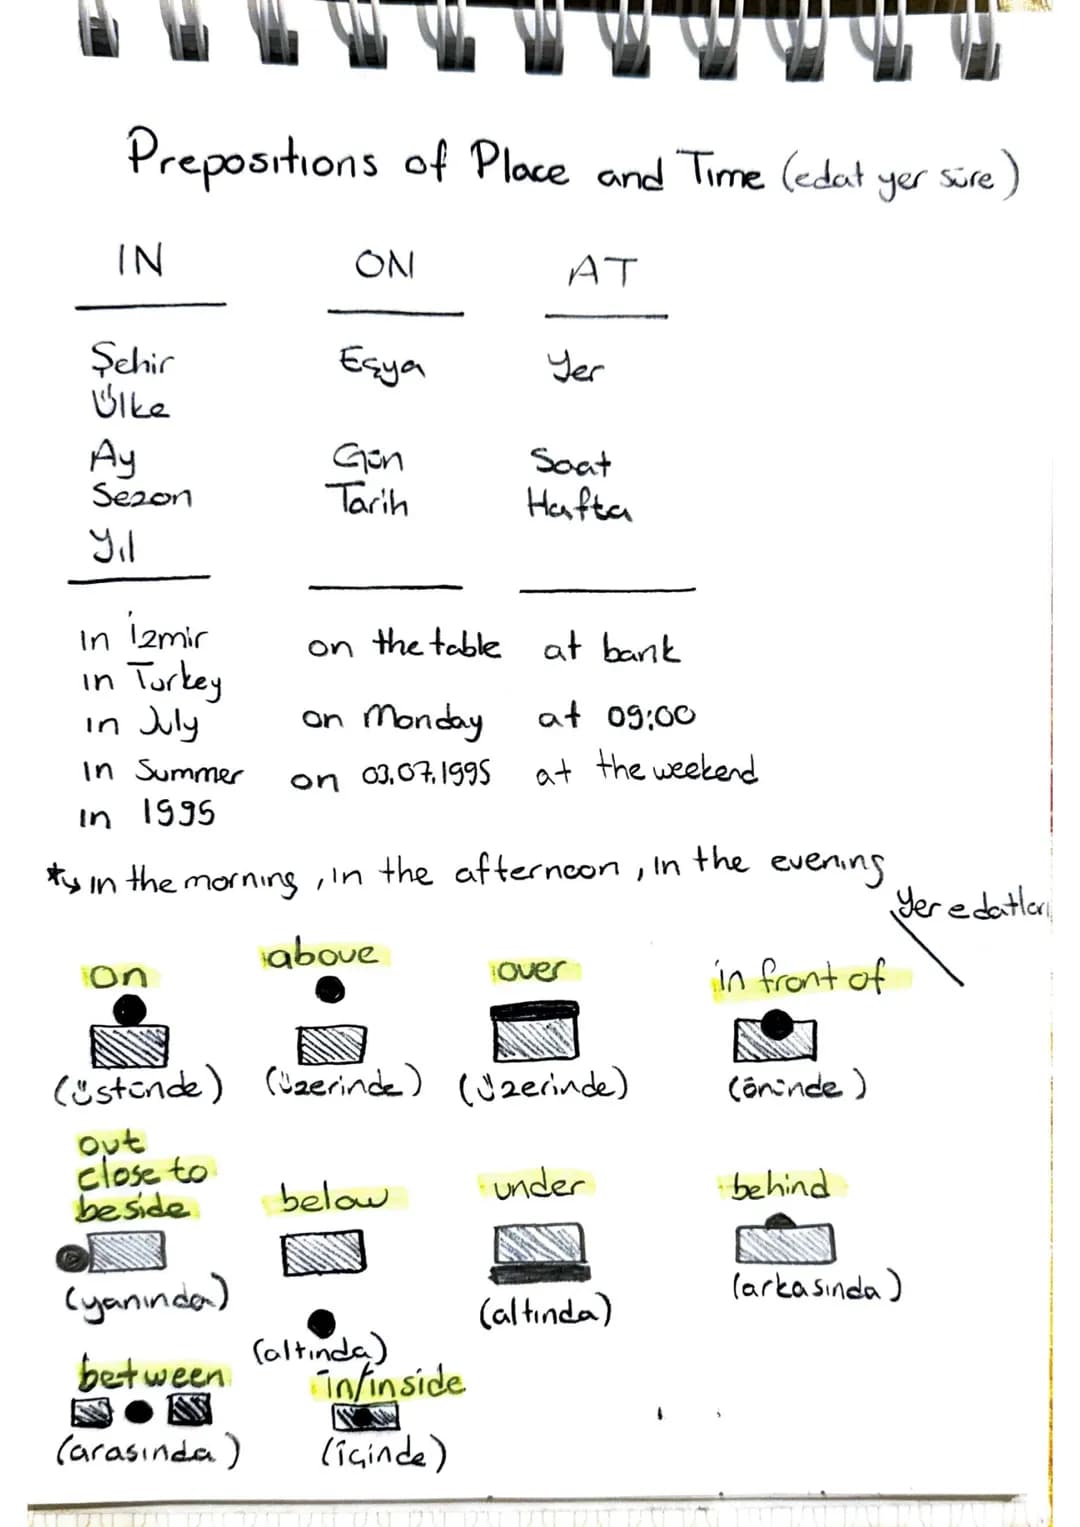 Prepositions of Place and Time (edat yer süre)
IN ON AT
Şehir Eşya Yer
Ülke
Ay Gün Saat
Sezon Tarih Hafta
Yıl
in İzmir on the table at bank
in Turkey
in July on Monday at 09:00
in Summer on 03.07.1995 at the weekend
in 1995
* in the morning, in the afternoon, in the evening
Yer edatları
on above over in front of
(üstünde) (üzerinde) (üzerinde) (önünde)
out
close to
beside below under behind
(yanında) (altında) (altında) (arkasında)
between in/inside
(arasında) (içinde)